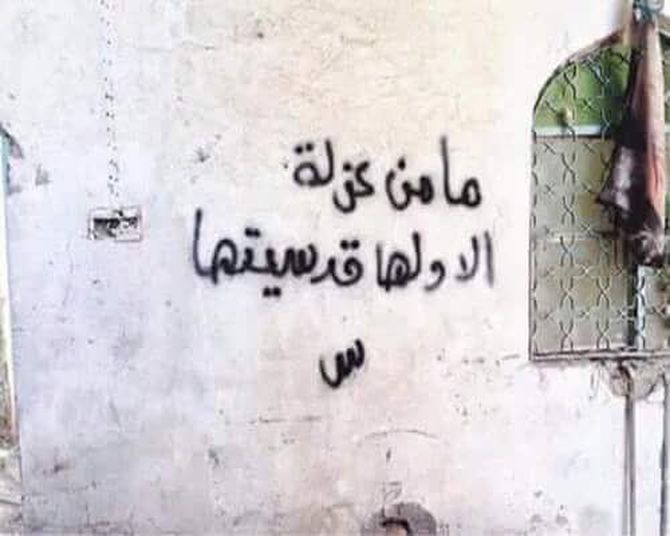 ما من عزلة
الا ولها قدسيتها
س